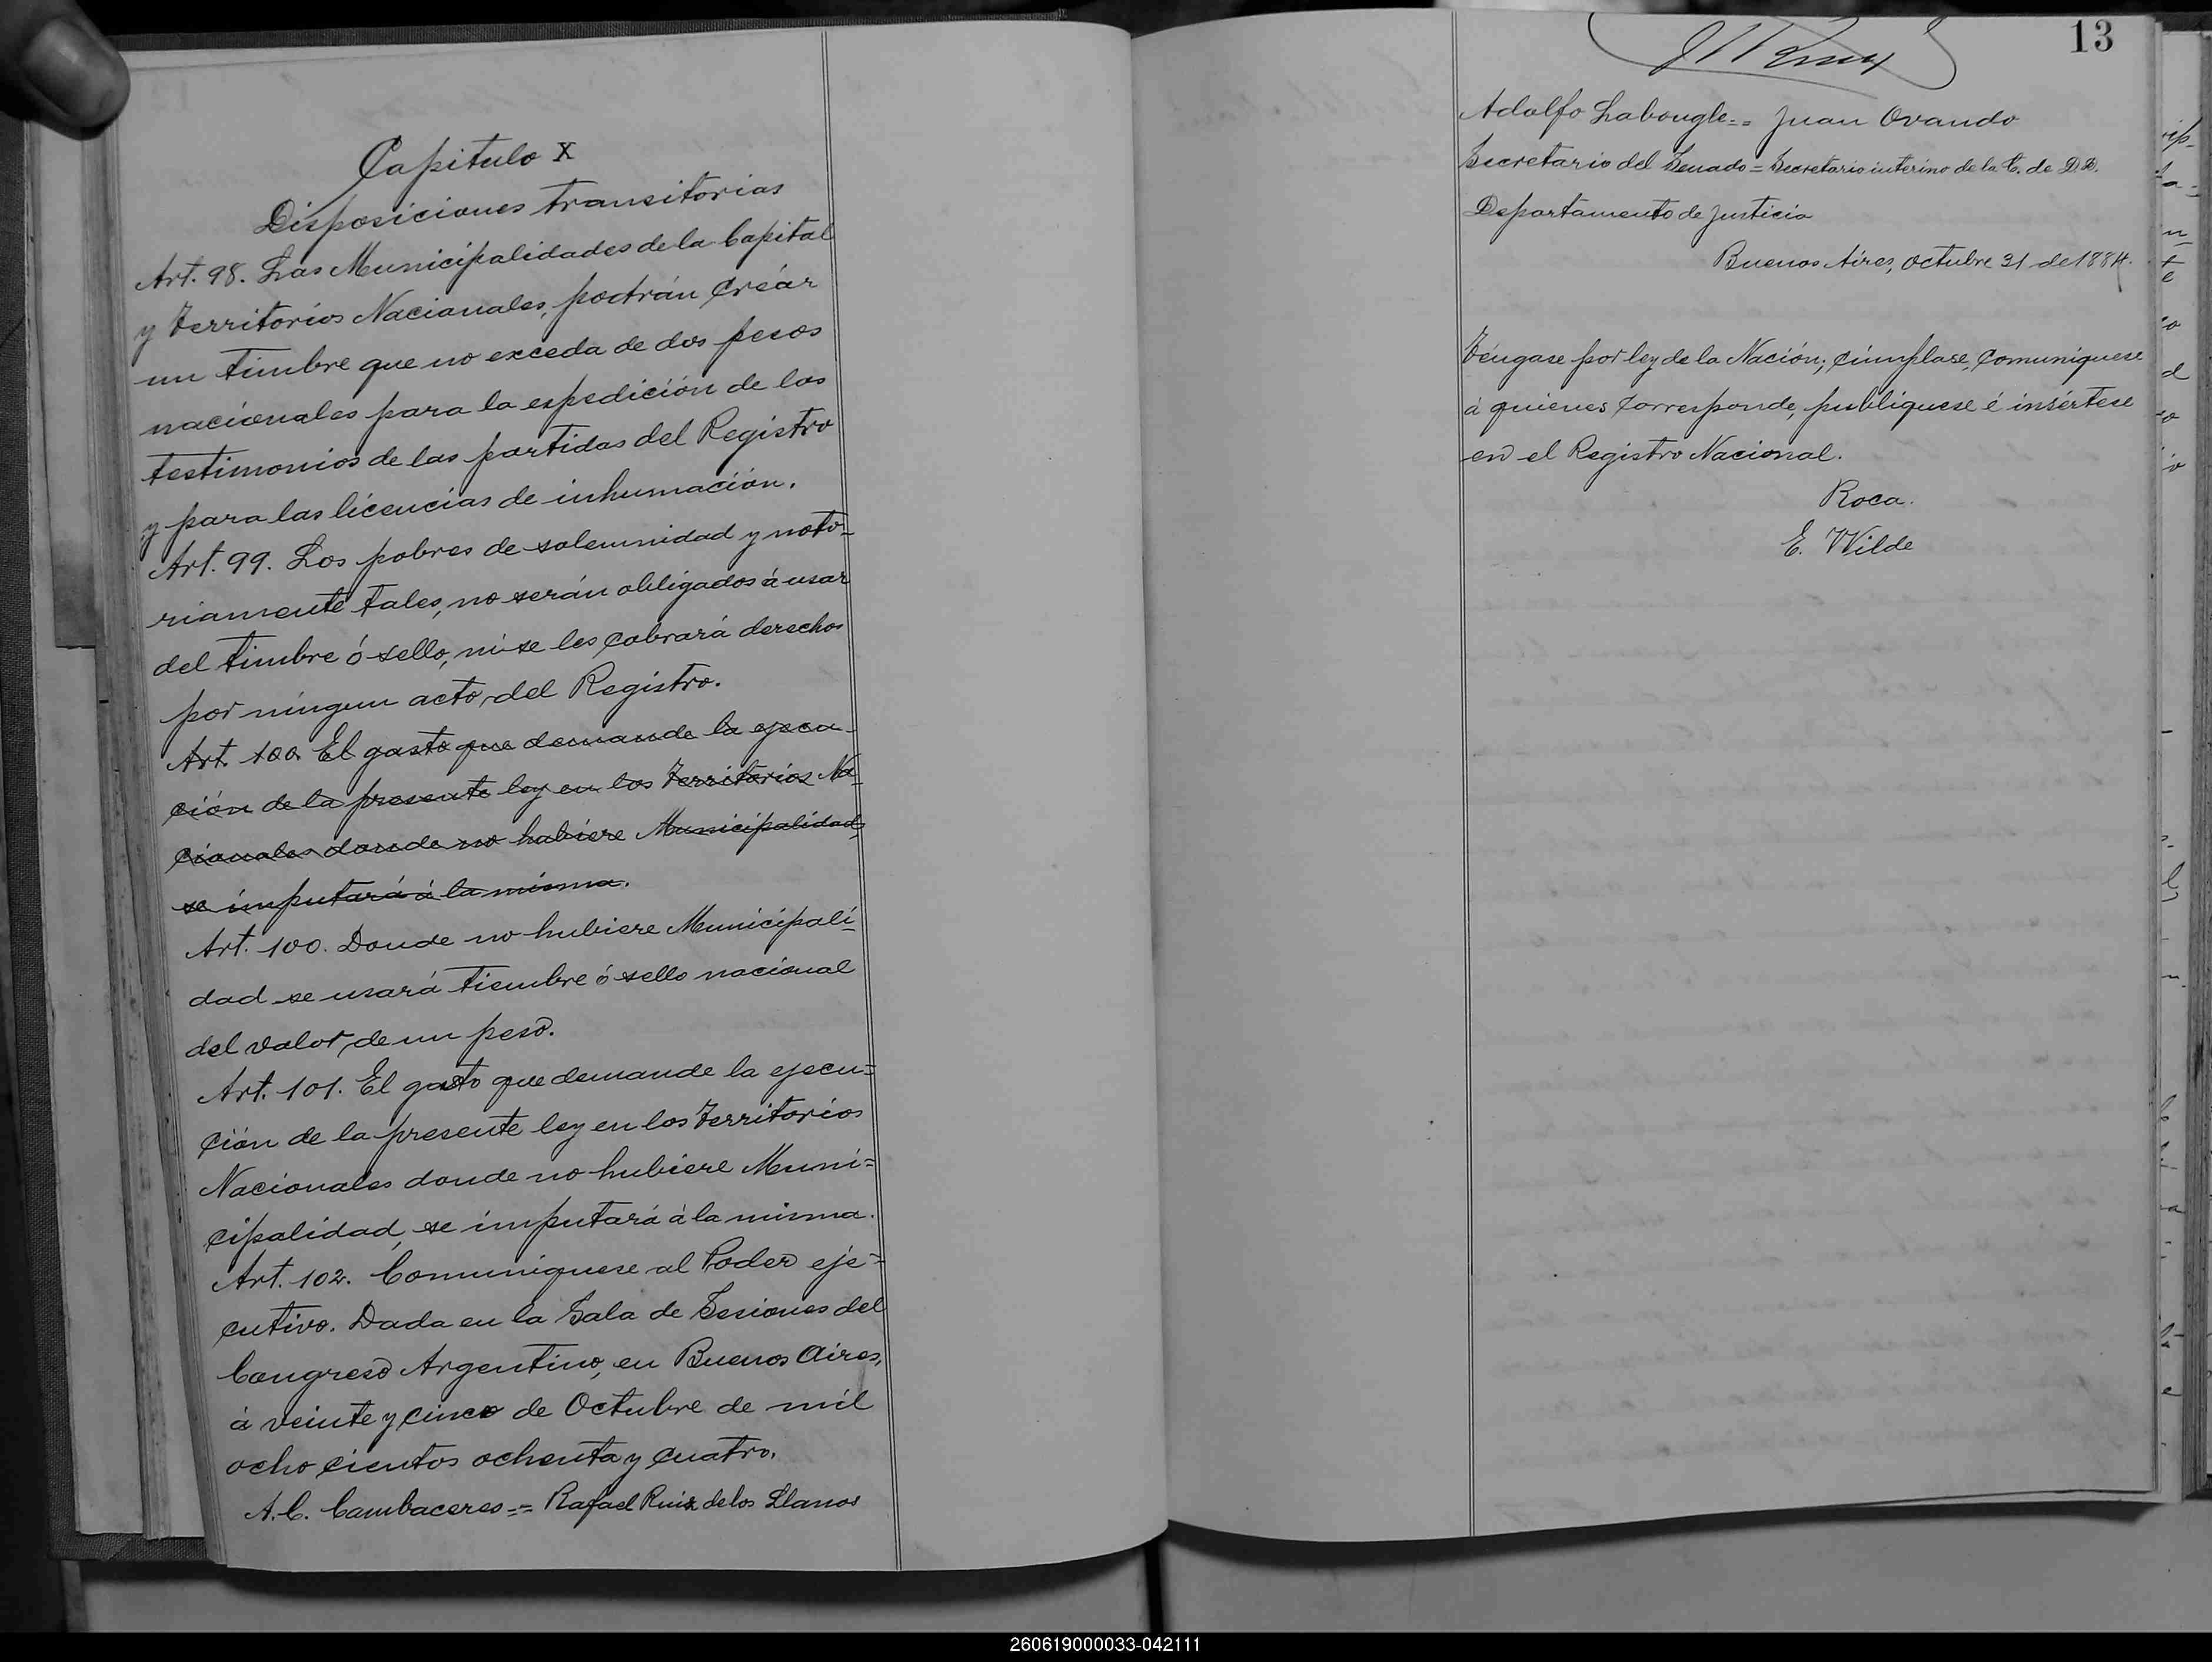 Capitulo X
Disposiciones transitorias
Art. 98. Las Municipalidades de la Capital
y Territorios Nacionales, podrán creár
un timbre que no exceda de dos pesos
nacionales para la espedición de los
testimonios de las partidas del Registro
y para las licencias de inhumación.
Art. 99. Los pobres de solemnidad y noto-
riamente tales, no serán obligados á usar
del timbre ó sello, ni se les cobrará derechos
por ningun acto, del Registro.
Art. 100. El gasto que demande la ejecu-
ción de la presente ley en los Territorios Na-
cionales donde no hubiere Municipalidad,
se imputará á la misma.
Art. 100. Donde no hubiere Municipali-
dad se usará tiembre ó sello nacional
del valor, de un peso.
Art. 101. El gasto que demande la ejecu=
ción de la presente ley en los Territorios
Nacionales donde no hubiere Muni=
cipalidad, se imputará á la misma.
Art. 102. Comuniquese al Poder eje=
cutivo. Dada en la Sala de Sesiones del
Congreso Argentino, en Buenos Aires,
á veinte y cinco de Octubre de mil
ocho cientos ochenta y cuatro.
A. C. Cambaceres == Rafael Ruiz de los Llanos
13
Adolfo Labougle == Juan Ovando
Secretario del Senado = Secretario interino de la C. de D.D.
Departamento de Justicia
Buenos Aires, Octubre 31 de 1884.
Téngase por ley de la Nación; cúmplase, comuniquese
á quienes corresponde, publiquese é insértese
en el Registro Nacional.
Roca.
E. Wilde
260619000033-042111